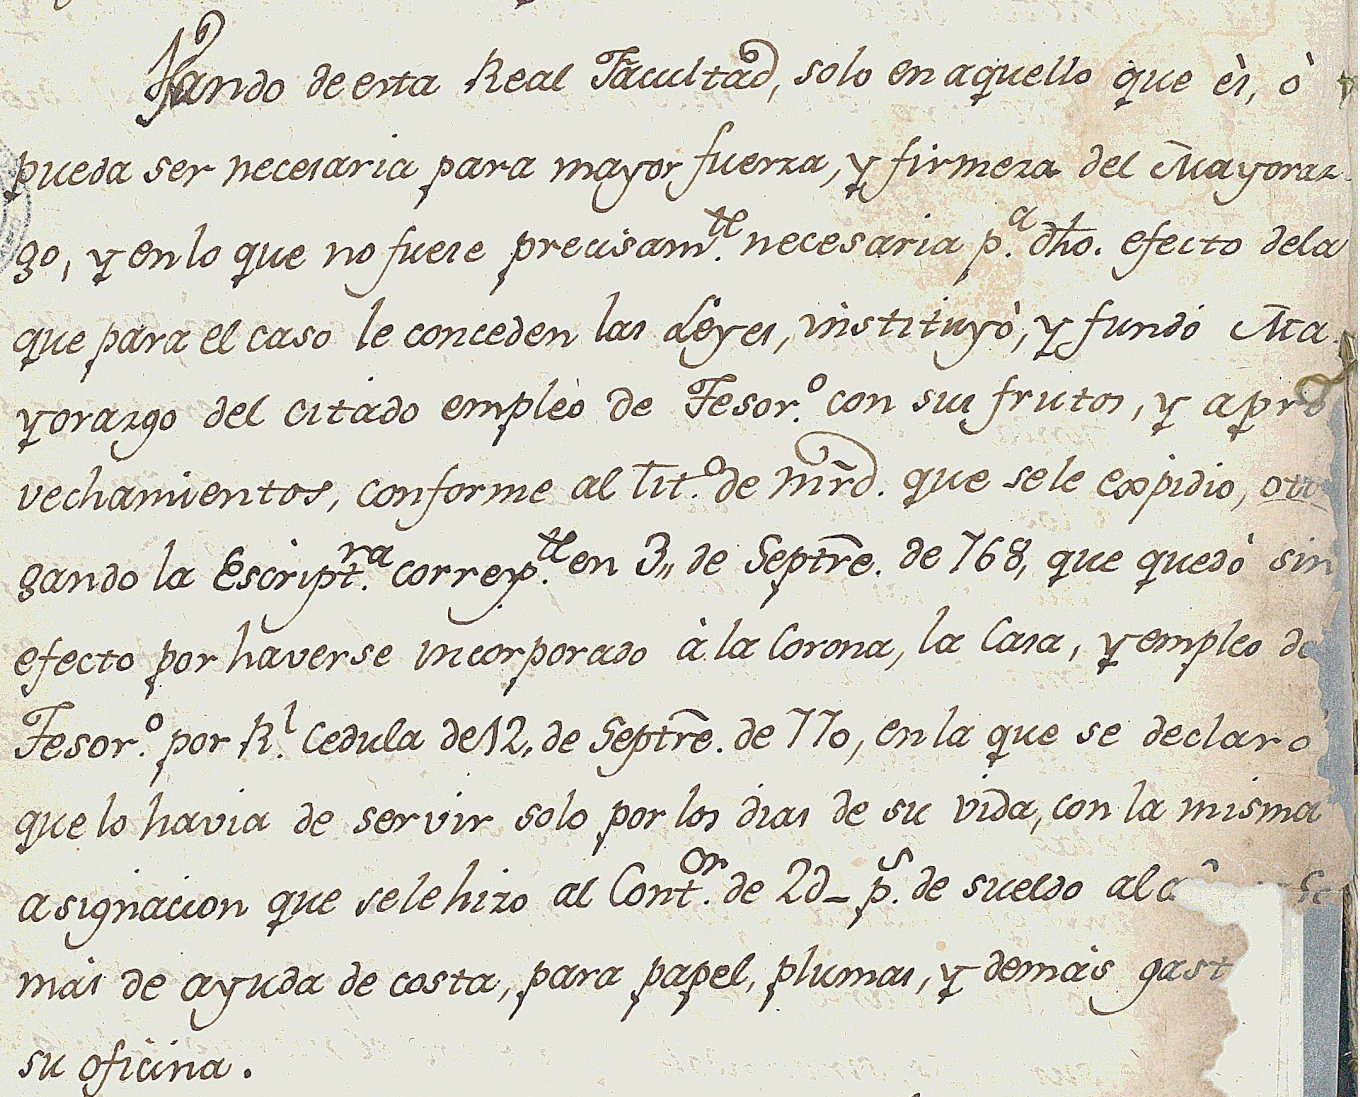 Vsando de esta Real Facultad, solo en aquello que ès, ò
pueda ser necesaria para mayor fuerza, y firmeza del Mayoraz-
go, y en lo que no fuese precisam.te necesaria p.a dho. efecto dela
que para el caso le conceden las Leyes, instituyò, y fundó Ma-
yorazgo del citado empleo de Tesor.o con sus frutos, y apro
vechamientos, conforme al tit.o de mrd. que se le expidio, otor
gando la Escript.ra corresp.te en 3,, de Septre. de 768, que quedò sin
efecto por haverse incorporado à la Corona, la Casa, y empleo de
Tesor.o por R.l Cedula de 12,, de Septre. de 770, en la que se declaro
que lo havia de servir solo por los dias de su vida, con la misma
asignacion que se le hizo al Cont.or de 2d_ p.s de sueldo al
más de ayuda de costa, para papel, plumas, y demàs gast
su oficina.